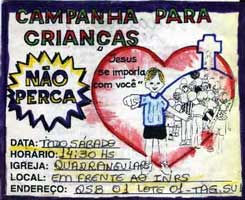 CAMPANHA PARA
CRIANÇAS
NÃO
PERCA
"Jesus
se importa
com você"
DATA: TODO SÁBADO
HORÁRIO: 14:30 HS
IGREJA: QUADRANGULAR
LOCAL: EM FRENTE AO INPS
ENDEREÇO: QSB 01 LOTE 01-TAG.SUL